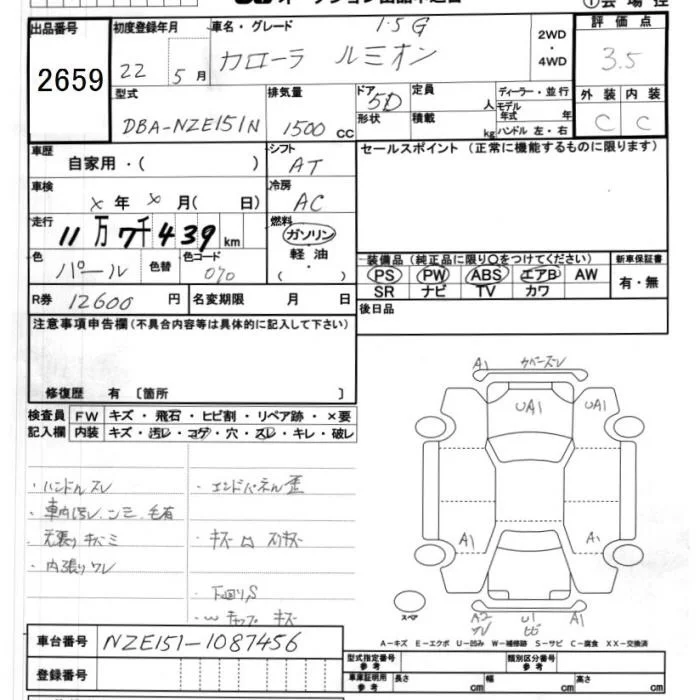 オークション出品申込書
①会場控
出品番号 初度登録年月 車名・グレード 1.5 G 2WD ・ 4WD 評価点
2659 22年 5月 カローラ ルミオン 3.5
型式 排気量 ドア 5D 定員 人 ディーラー・並行 外装 内装
DBA-NZE151N 1500 CC 形状 積載 kg モデル年式 年 C C
ハンドル 左・右
車歴 自家用・( ) シフト AT セールスポイント (正常に機能するものに限ります)
車検 × 年 × 月( 日) 冷房 AC
走行 11万7千439km 燃料 ガソリン
軽油
色 パール 色替 色コード 070 ・ 装備品 (純正品に限り〇をつけてください) 新車保証書
PS PW ABS エアB AW 有・無
R券 12600 円 名変期限 月 日 SR ナビ TV カワ
後日品
注意事項申告欄(不具合内容等は具体的に記入して下さい)
修復歴 有 〔箇所 〕
検査員 FW キズ・飛石・ヒビ割・リペア跡・×要
記入欄 内装 キズ・汚レ・コゲ・穴・スレ・キレ・破レ
・ハンドルスレ ・エンドパネル歪
・車内汚レ、シミ、毛有
・天張りキバミ ・キズ凹スリキズ
・内張りワレ
下回り、S
A1 カバーズレ
UA1 UA1
A1 A1
スペア A2 U1 A1
ズレ ヒビ
A-キズ E-エクボ U-凹み W-補修跡 S-サビ C-腐食 XX-交換済
車台番号 NZE151-1087456
登録番号
型式指定番号 参考 類別区分番号 参考
車庫証明用 参考 長さ cm 幅 cm 高さ cm